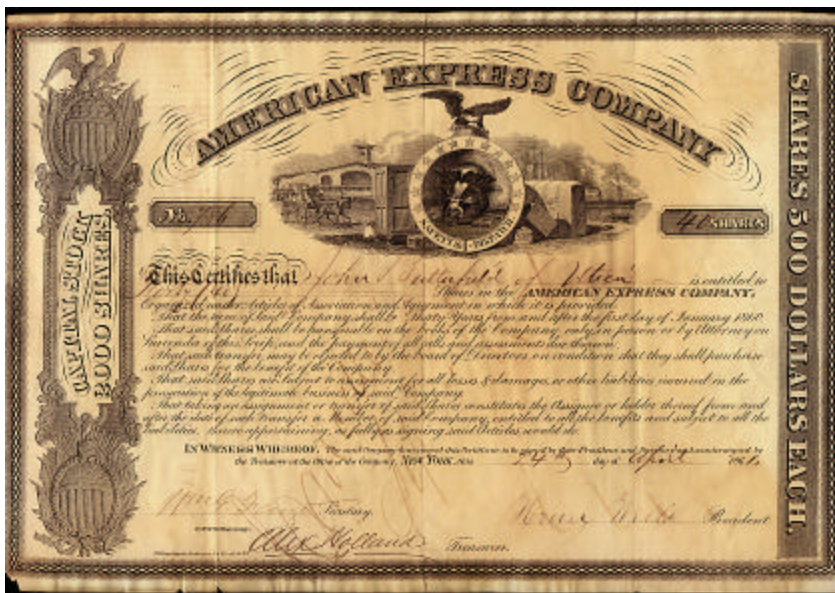 AMERICAN EXPRESS COMPANY
SAFETY & DISPATCH
No. 756
40 SHARES
CAPITAL STOCK
SHARES 500 DOLLARS EACH.
This Certifies that John Butterfield of Utica is entitled to
Shares in the AMERICAN EXPRESS COMPANY,
Created under Articles of Association and Agreement in which it is provided
That the term of said Company shall be Thirty Years from and after the first day of January 1860.
That said Shares shall be transferable on the books of the Company only in person or by Attorney on
Surrender of this Scrip, and the payment of all calls and assessments due thereon.
That such transfer may be objected to by the board of Directors on condition that they shall purchase
said Shares for the benefit of the Company.
That said Shares are Subject to assignment for all losses & damages, or other liabilities incurred in the
prosecution of the legitimate business of said Company.
That taking an assignment or transfer of said Shares constitutes the Assignee or holder thereof from and
after the date of such Transfer a Member of said Company, entitled to all the benefits and subject to all the
liabilities, thereto appertaining, as fully as signing said Articles would do.
IN WITNESS WHEREOF, The said Company have caused this Certificate to be signed by their President and Secretary and countersigned by
the Treasurer at the Office of the Company, NEW YORK, this 24th day of April
Secretary. President
Alex Holland Treasurer.